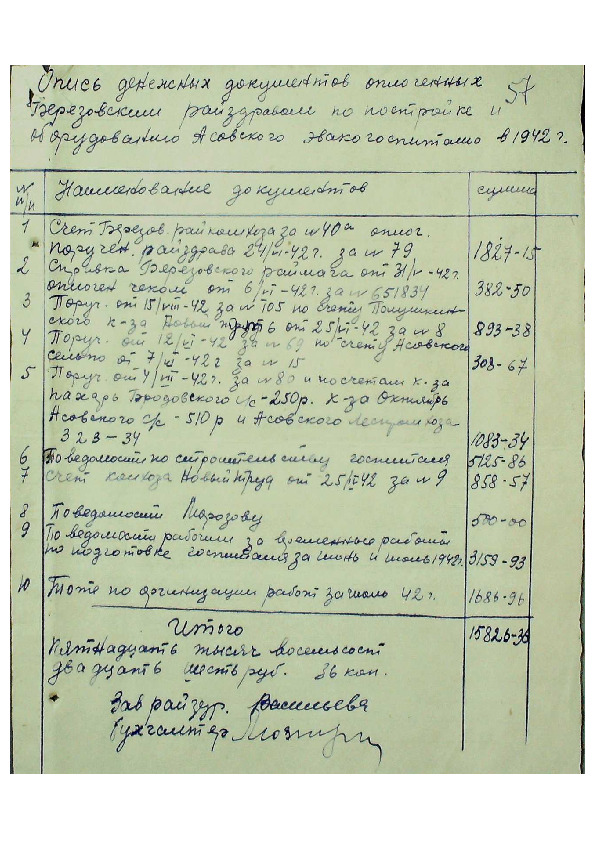 Опись денежных документов оплоченных
57
Березовским райздравом по постройке и
оборудованию Асовского эвакогоспиталю в 1942 г.
№ п/п Наименование документов сумма
1 Счет Березов. райкомхоза за № 40а оплоч.
поручен. райздрава 24/VI-42 г. за № 79 1827-15
2 Справка Березовского раймага от 31/V-42 г.
оплочен чеком от 6/VI-42 г. за № 651834 382-50
3 Поруч. от 15/VIII-42 за № 105 по счету
ского к-за Новый труд № 6 от 25/VI-42 за № 8 893-38
4 Поруч. от 12/VI-42 за № 69 по счету Асовского
сельпо от 7/VI-42 г за № 15 308-67
5 Поруч. от 4/VII-42 г. за № 80 и по счетам к-за
Пахарь Бродовского с/с-250р. к-за Октябрь
Асовского с/с - 510 р и Асовского Леспромхоза
323-34 1083-34
6 Поведомости по строительству госпиталя 5125-86
7 Счет колхоза Новый труд от 25/VI 42 за № 9 858-57
8 Поведомости Морозову 500-00
9 Поведомости рабочим за временные работы
по подготовке госпиталя за июнь и июль 1942 г. 3159-93
10 Тоже по организации работ за июло 42 г. 1686-96
Итого 15826-36
Пятнадцать тысяч восемьсот
двадцать шесть руб. 36 коп.
Зав райздр. Васильева
Бухгалтер